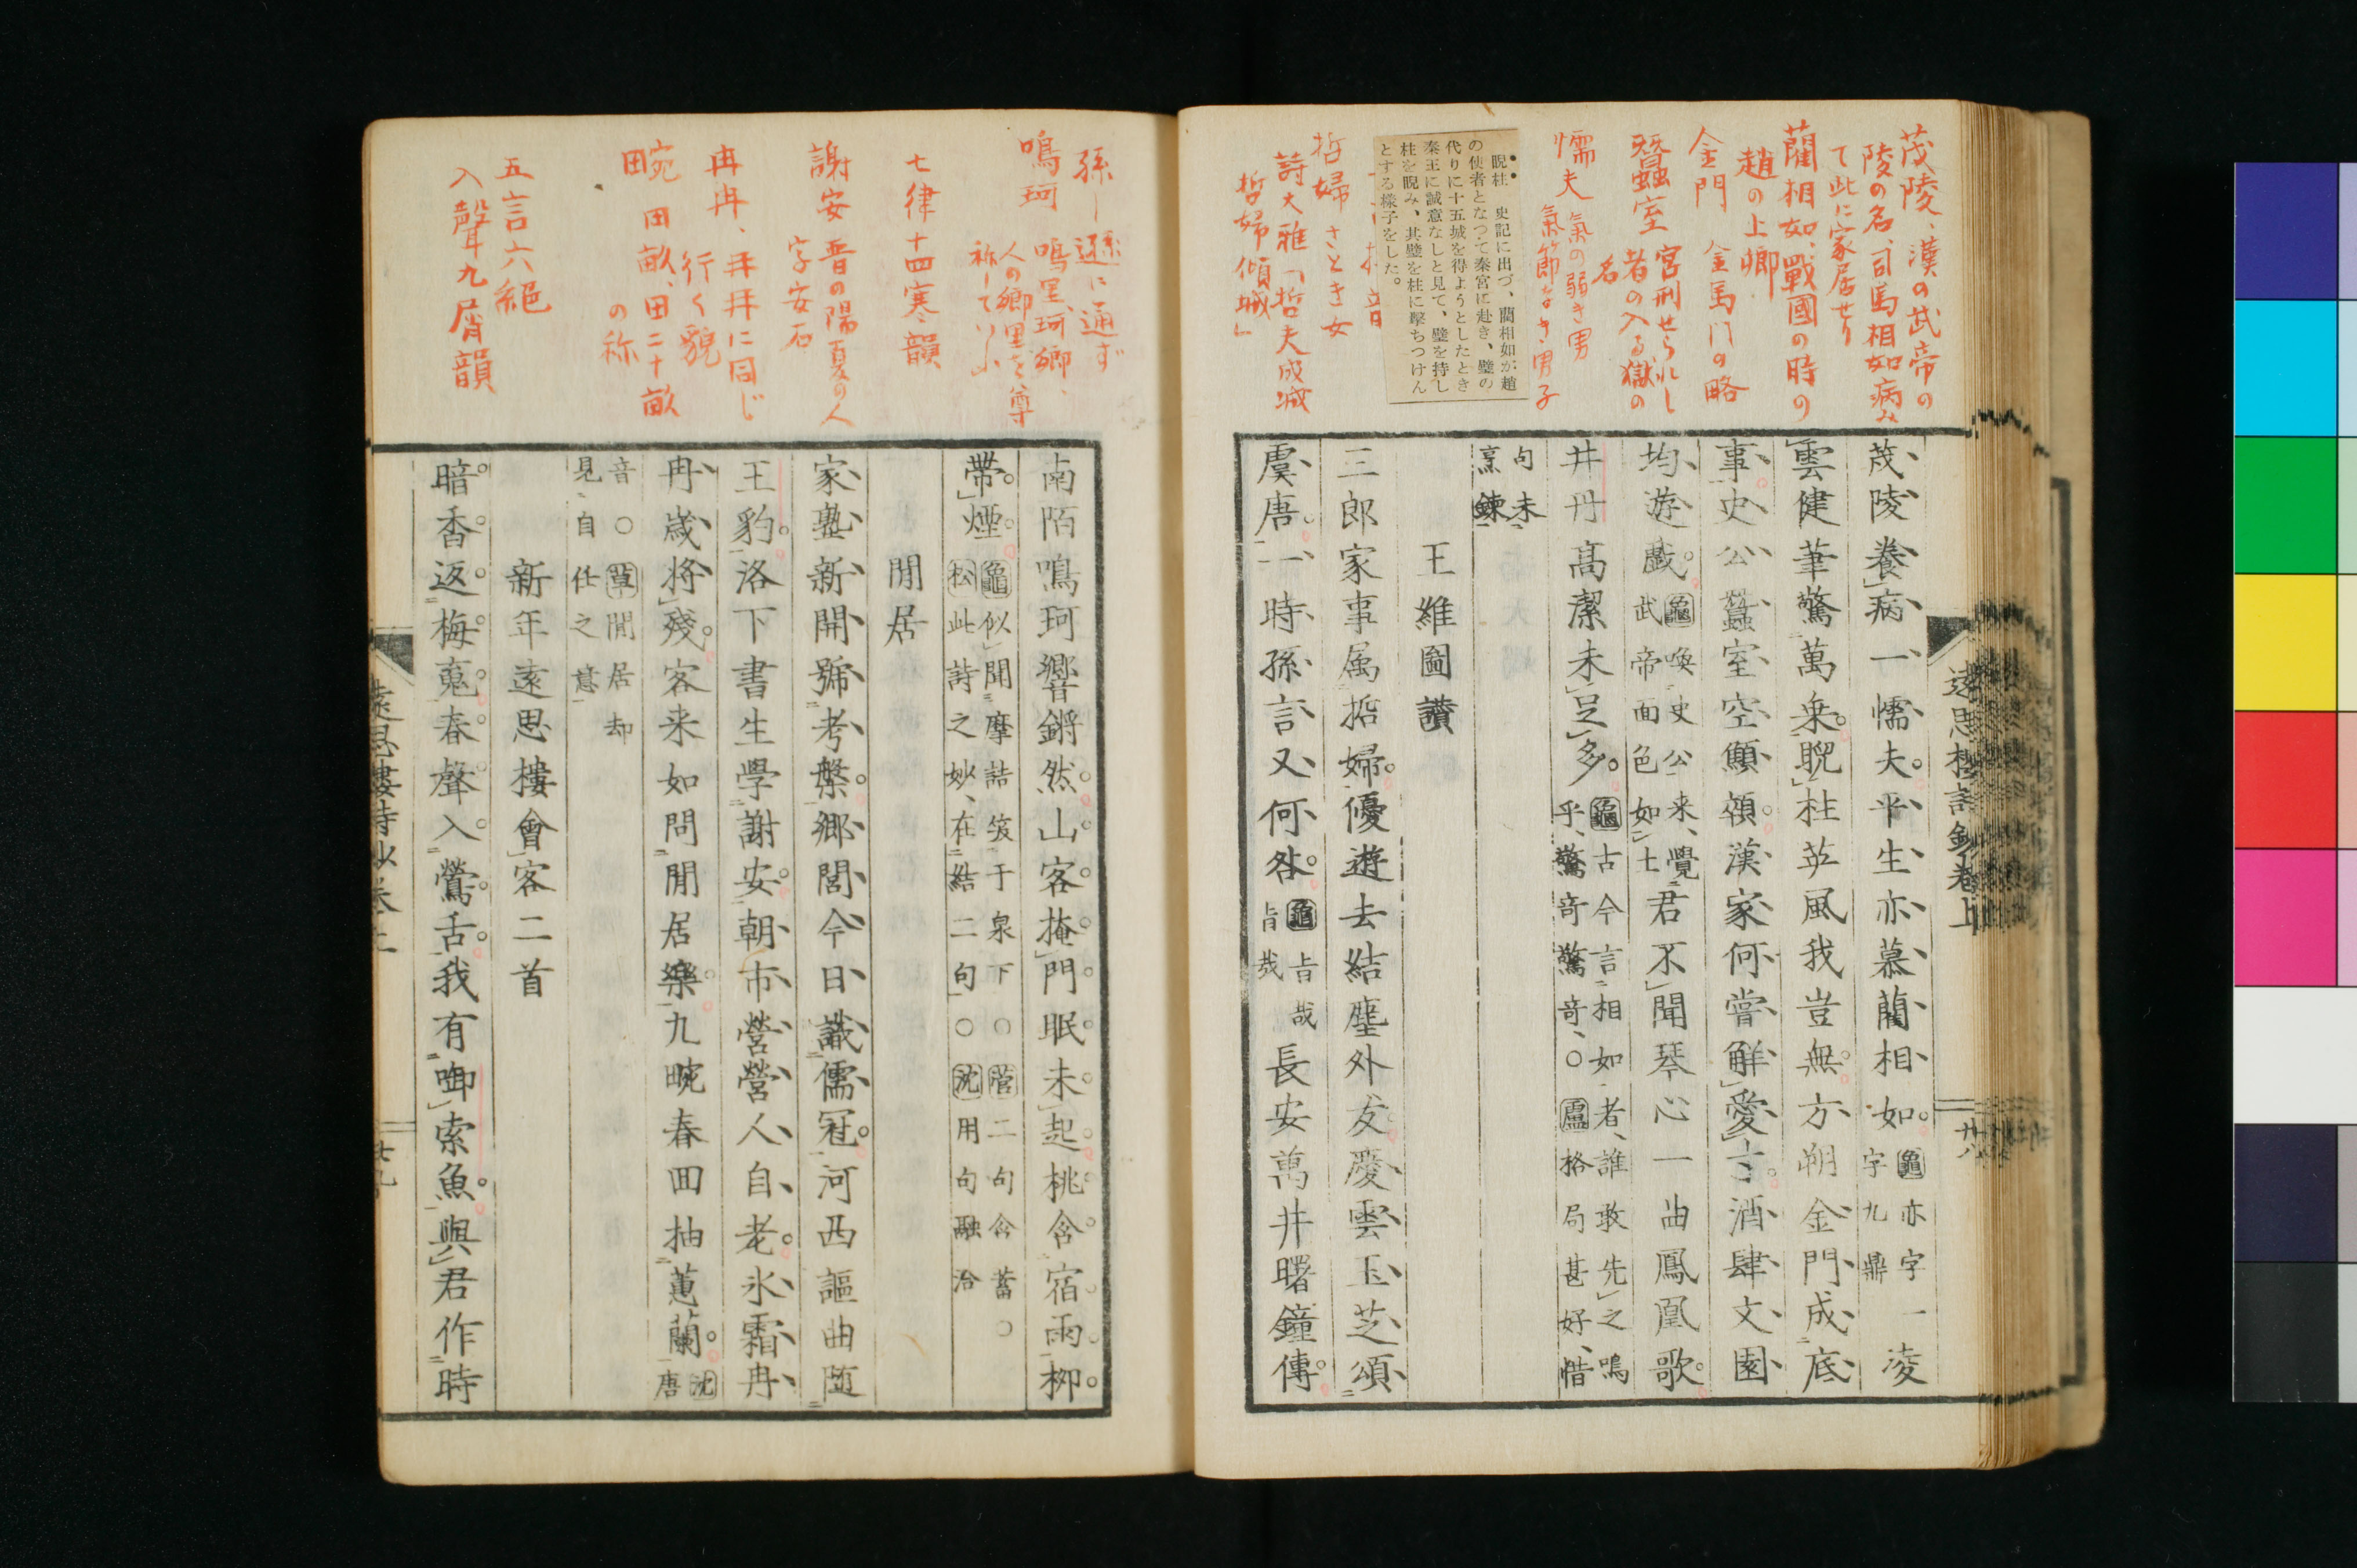 茂陵、漢の武帝の
陵の名、司馬相如病み
て此に家居せり
藺相如、戰國の時の
趙の上卿
金門 金馬门の略
蠶室 宮刑せられし
者の入る獄の
名
懦夫 氣の弱き男
氣節なき男子
睨柱 史記に出づ、藺相如が趙
の使者となつて秦宮に赴き、璧の
代りに十五城を得ようとしたとき
秦王に誠意なしと見て、璧を持し
柱を睨み、其璧を柱に擊ちつけん
とする樣子をした。
哲婦 さとき女
詩大雅「哲夫成城
哲婦傾城」
遠思樓詩鈔卷上
廿八
茂陵養病一懦夫平生亦慕藺相如
龜亦字一
字九鼎
凌
雲健筆驚萬乘睨柱英風我豈無方朔金門成底
事史公蠶室空顲頷漢家何嘗解愛士酒肆文園
均遊戲
龜喚史公来覺
武帝面色如土
君不聞琴心一曲鳳凰歌
井丹高潔未足多
龜古今言相如者誰敢先之鳴
乎驚奇驚奇○盧格局甚好惜
句未
烹鍊
王維圖讚
三郎家事属哲婦優遊去結塵外友慶雲玉芝頌
虞唐一時孫言又何咎
龜旨哉
旨哉
長安萬井曙鐘傳
孫ー遜に通ず
鳴珂 鳴里、珂鄉、
人の鄉里を尊
称していふ
七律十四寒韻
謝安 晋の陽夏の人
字安石
冉冉、冄冄に同じ
行く貌
畹 田畝、田二十畝
の称
五言六絕
入聲九屑韻
南陌鳴珂響鏘然山客掩門眠未起桃含宿雨柳
帶煙
龜似聞摩詰筑于泉下○菅二句含蓄○
松此詩之妙在結二句○沈用句融洽
閒居
家塾新開號考槃鄉閭今日識儒冠河西謳曲隨
王豹洛下書生學謝安朝市營營人自老氷霜冉
冉歲將殘客来如問閒居樂九畹春回抽蕙蘭
沈
唐
音○覃閒居却
見自任之意
新年遠思樓會客二首
暗香返梅䰟春聲入鶯舌我有啣索魚與君作時
遠思樓詩鈔卷上
廿九